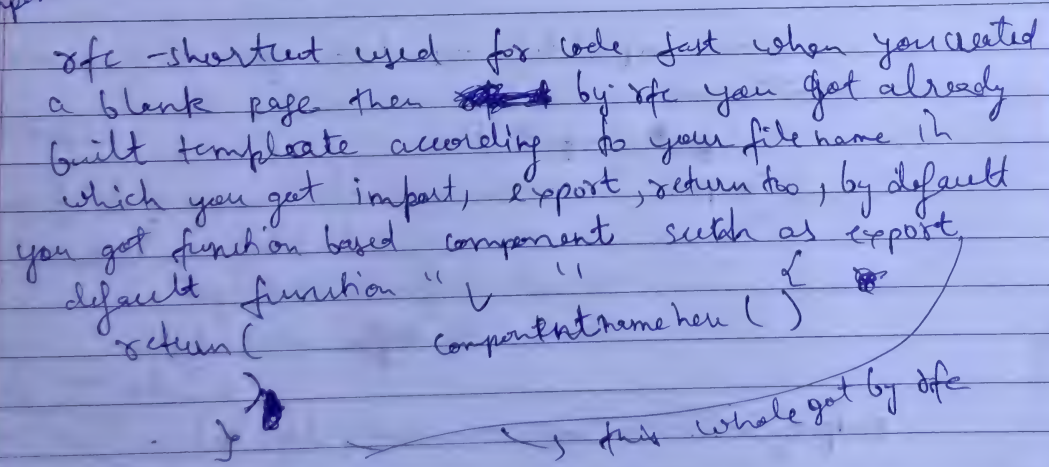 rfc - shortcut used for code fast when you created
a blank page then by rfc you got already
built temploate according to your file name in
which you get import, export, return too, by default
you got function based component sutch as export
default function " " {
return ( componentnamehere ( )
)
}
this whole got by rfc